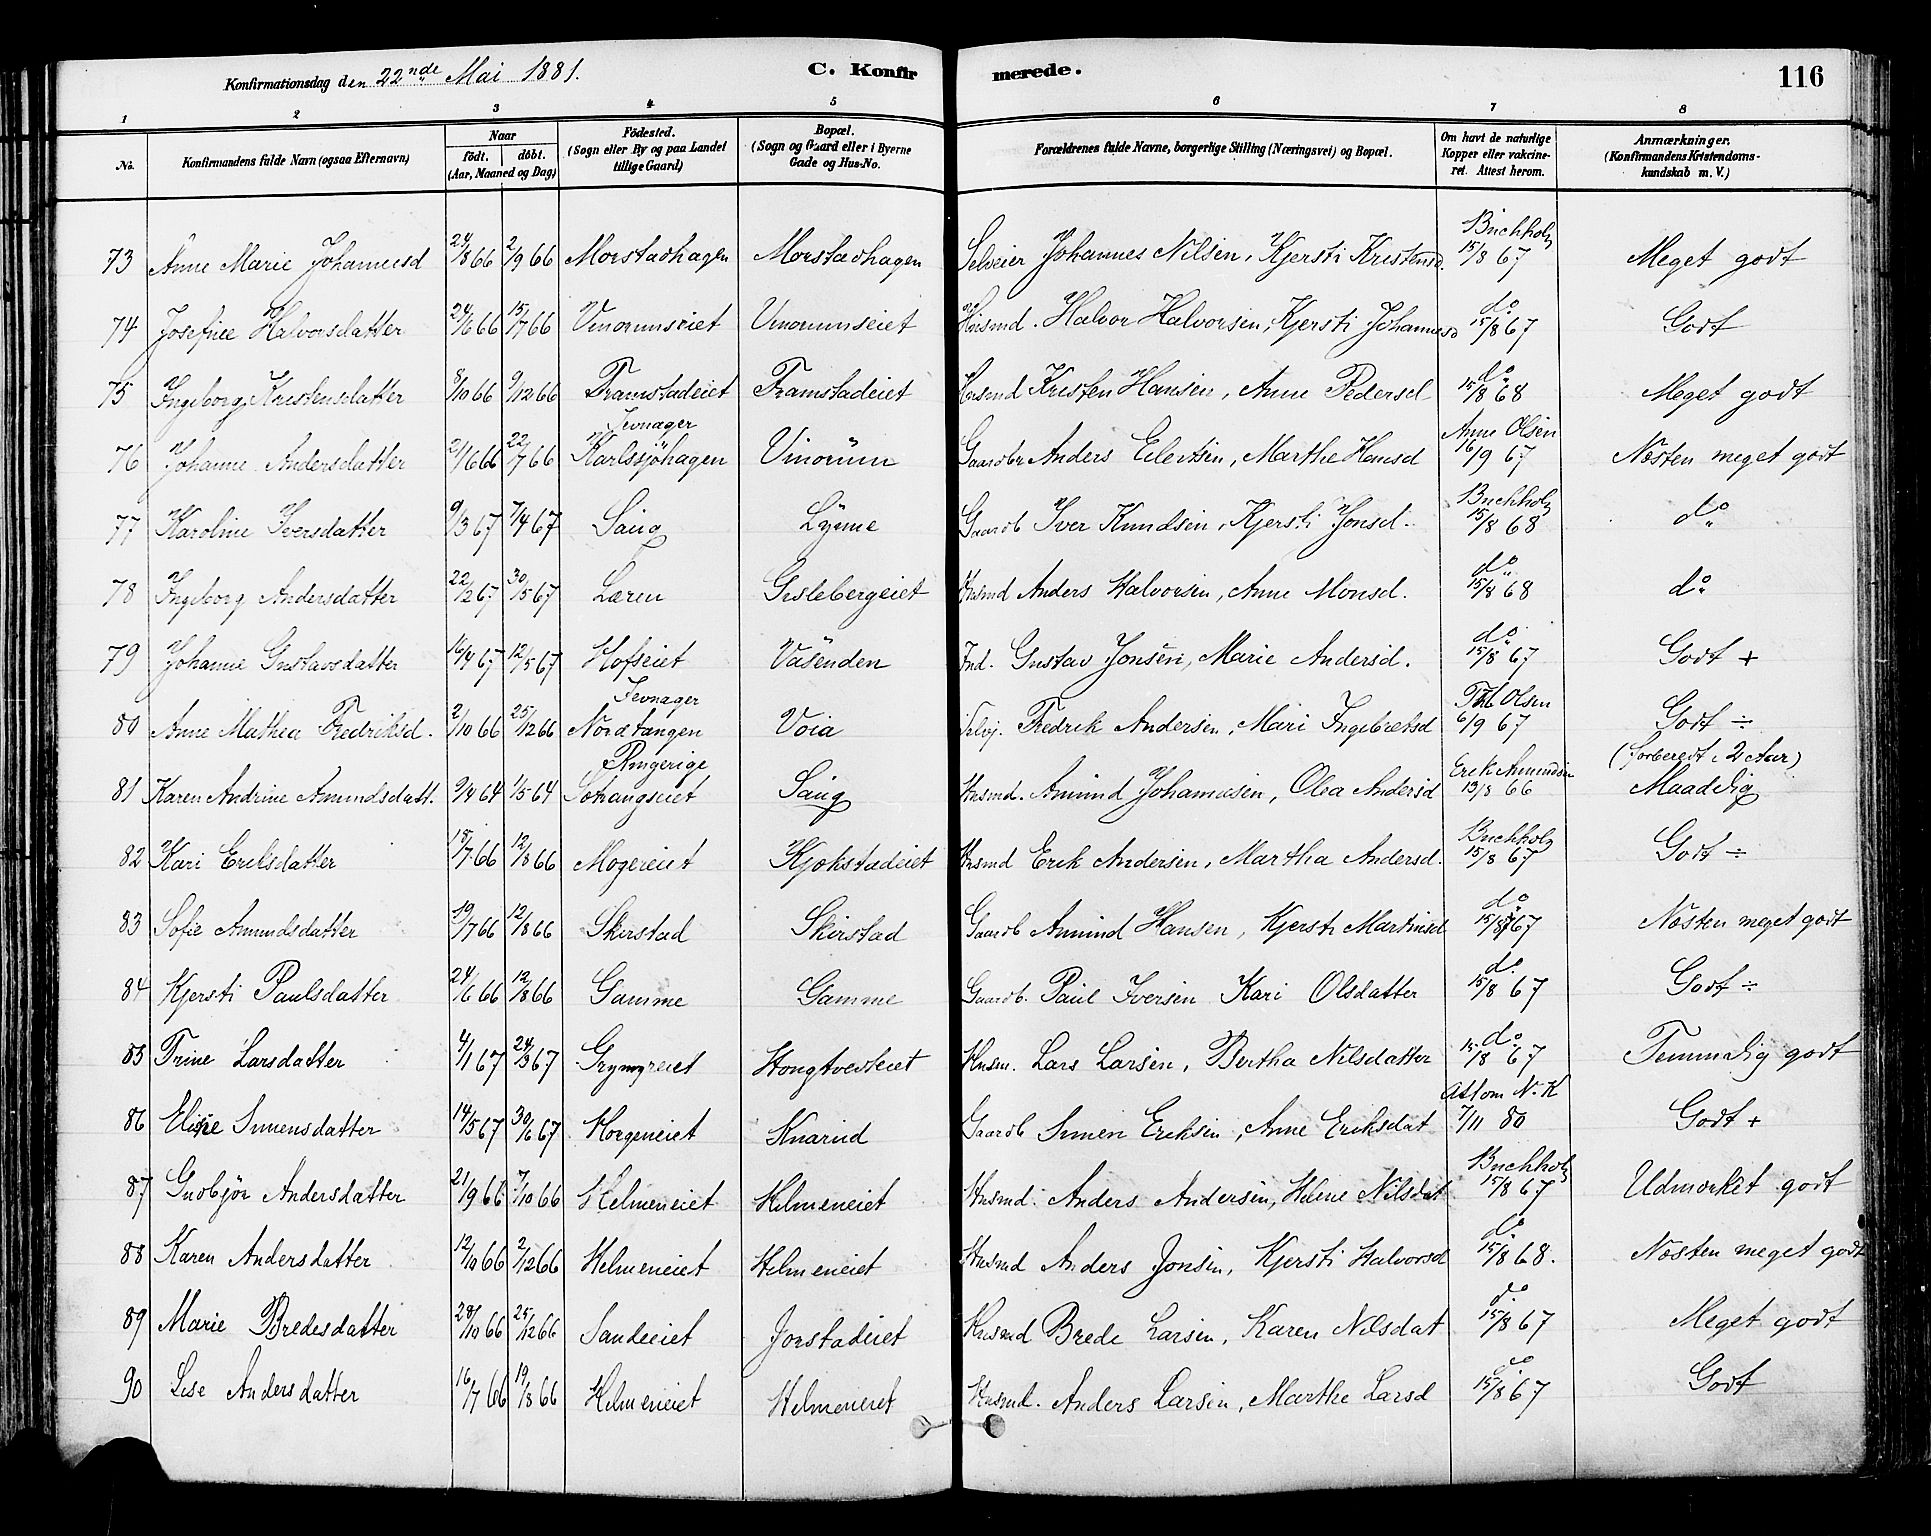 Konfirmationsdag den 22nde Mai 1881. C. Konfirmerede. 116
1 2 3 4 5 6 7 8
No. Konfirmandens fulde Navn (ogsaa Efternavn) Naar födt. döbt. (Aar, Maaned og Dag) Födested. (Sogn eller By og paa Landet tillige Gaard) Bopæl. (Sogn og Gaard eller i Byerne Gade og Hus-No. Forældrenes fulde Navne, borgerlige Stilling (Næringsvei) og Bopæl. Om havt de naturlige Kopper eller vakcineret. Attest herom. Anmærkninger. (Konfirmandens Kristendomskundskab m. V.)
73 Anne Marie Johannesd 24/8 66 2/9 66 Morstadhagen Morstadhagen Selveier Johannes Nilsen, Kjersti Kristensd. Buchholz 15/8 67 Meget godt
74 Josefine Halvorsdatter 24/6 66 15/7 66 Vinorumseiet Vinorumseiet Husmd. Halvor Halvorsen, Kjersti Johannesd do 15/8 67 Godt
75 Ingeborg Kristensdatter 8/10 66 9/12 66 Framstadeiet Framstadeiet Husmd Kristen Hansen, Anne Pedersd do 15/8 68 Meget godt
76 Johanne Andersdatter 21/6 66 22/7 66 Jevnager Karlssjöhagen Vinorum Gaardbr Anders Eilertsen, Marthe Hansd Anne Olsen 16/9 67 Nösten meget godt
77 Karoline Iversdatter 9/3 67 7/4 67 Saug Lynne Gaardb Iver Knudsen, Kjersti Jonsd. Buchholz 15/8 68 do
78 Ingeborg Andersdatter 22/2 67 30/5 67 Læren Gislebergeiet Husmd Anders Halvorsen, Anne Monsd. do 15/8 68 do
79 Johanne Gustavsdatter 16/4 67 12/5 67 Hofseiet Väsenden Ind. Gustav Jonsen, Marie Andersd. do 15/8 67 Godt +
80 Anne Mathea Fredriksd. 2/10 66 25/12 66 Jevnager Nordtangen Voia Selvj. Fredrik Andersen, Mari Ingebretsd Olsen 6/9 67 Godt ÷
81 Karen Andrine Amundsdatt. 9/4 64 1/5 64 Ringerige Sohangseiet Saug Husmd. Amund Johannesen, Olea Andersd Erik Amundsen 13/8 66 (forberedt i 2 Aar) Maadelig
82 Kari Eriksdatter 18/7 66 12/8 66 Mogereiet Kjokstadeiet Husmd Erik Andersen, Martha Andersd. Buchholz 15/8 67 Godt ÷
83 Sofie Amundsdatter 19/7 66 12/8 66 Skirstad Skirstad Gaardb Amund Hansen, Kjersti Martinsd do 15/8 67 Nösten meget godt
84 Kjersti Paulsdatter 24/6 66 12/8 66 Gamme Gamme Gaardb. Paul Iversen Kari Olsdatter do 15/8 67 Godt ÷
85 Trine Larsdatter 4/1 67 24/3 67 Grymyreiet Hongtvedteiet Husm. Lars Larsen, Bertha Nilsdatter do 15/8 67 Temmelig godt
86 Elise Simensdatter 14/5 67 30/6 67 Horgeneiet Knarud Gaardb Simen Eriksen, Anne Eriksdat Att om N.K 7/11 80 Godt +
87 Gudbjör Andersdatter 21/9 66 7/10 66 Helmeneiet Helmeneiet Husmd. Anders Andersen, Helene Nilsdat Buchholz 15/8 67 Udmærket godt
88 Karen Andersdatter 12/10 66 2/12 66 Helmeneiet Helmeneiet Husmd Anders Jonsen, Kjersti Halvorsd do 15/8 68. Nösten meget godt
89 Marie Bredesdatter 28/10 66 25/12 66 Sandeeiet Jorstadeiet Husmd Brede Larsen, Karen Nilsdat do 15/8 67 Meget godt
90 Lise Andersdatter 16/7 66 19/8 66 Helmeneiet Helmeneiet Husmd. Anders Larsen, Marthe Larsd do 15/8 67 Godt